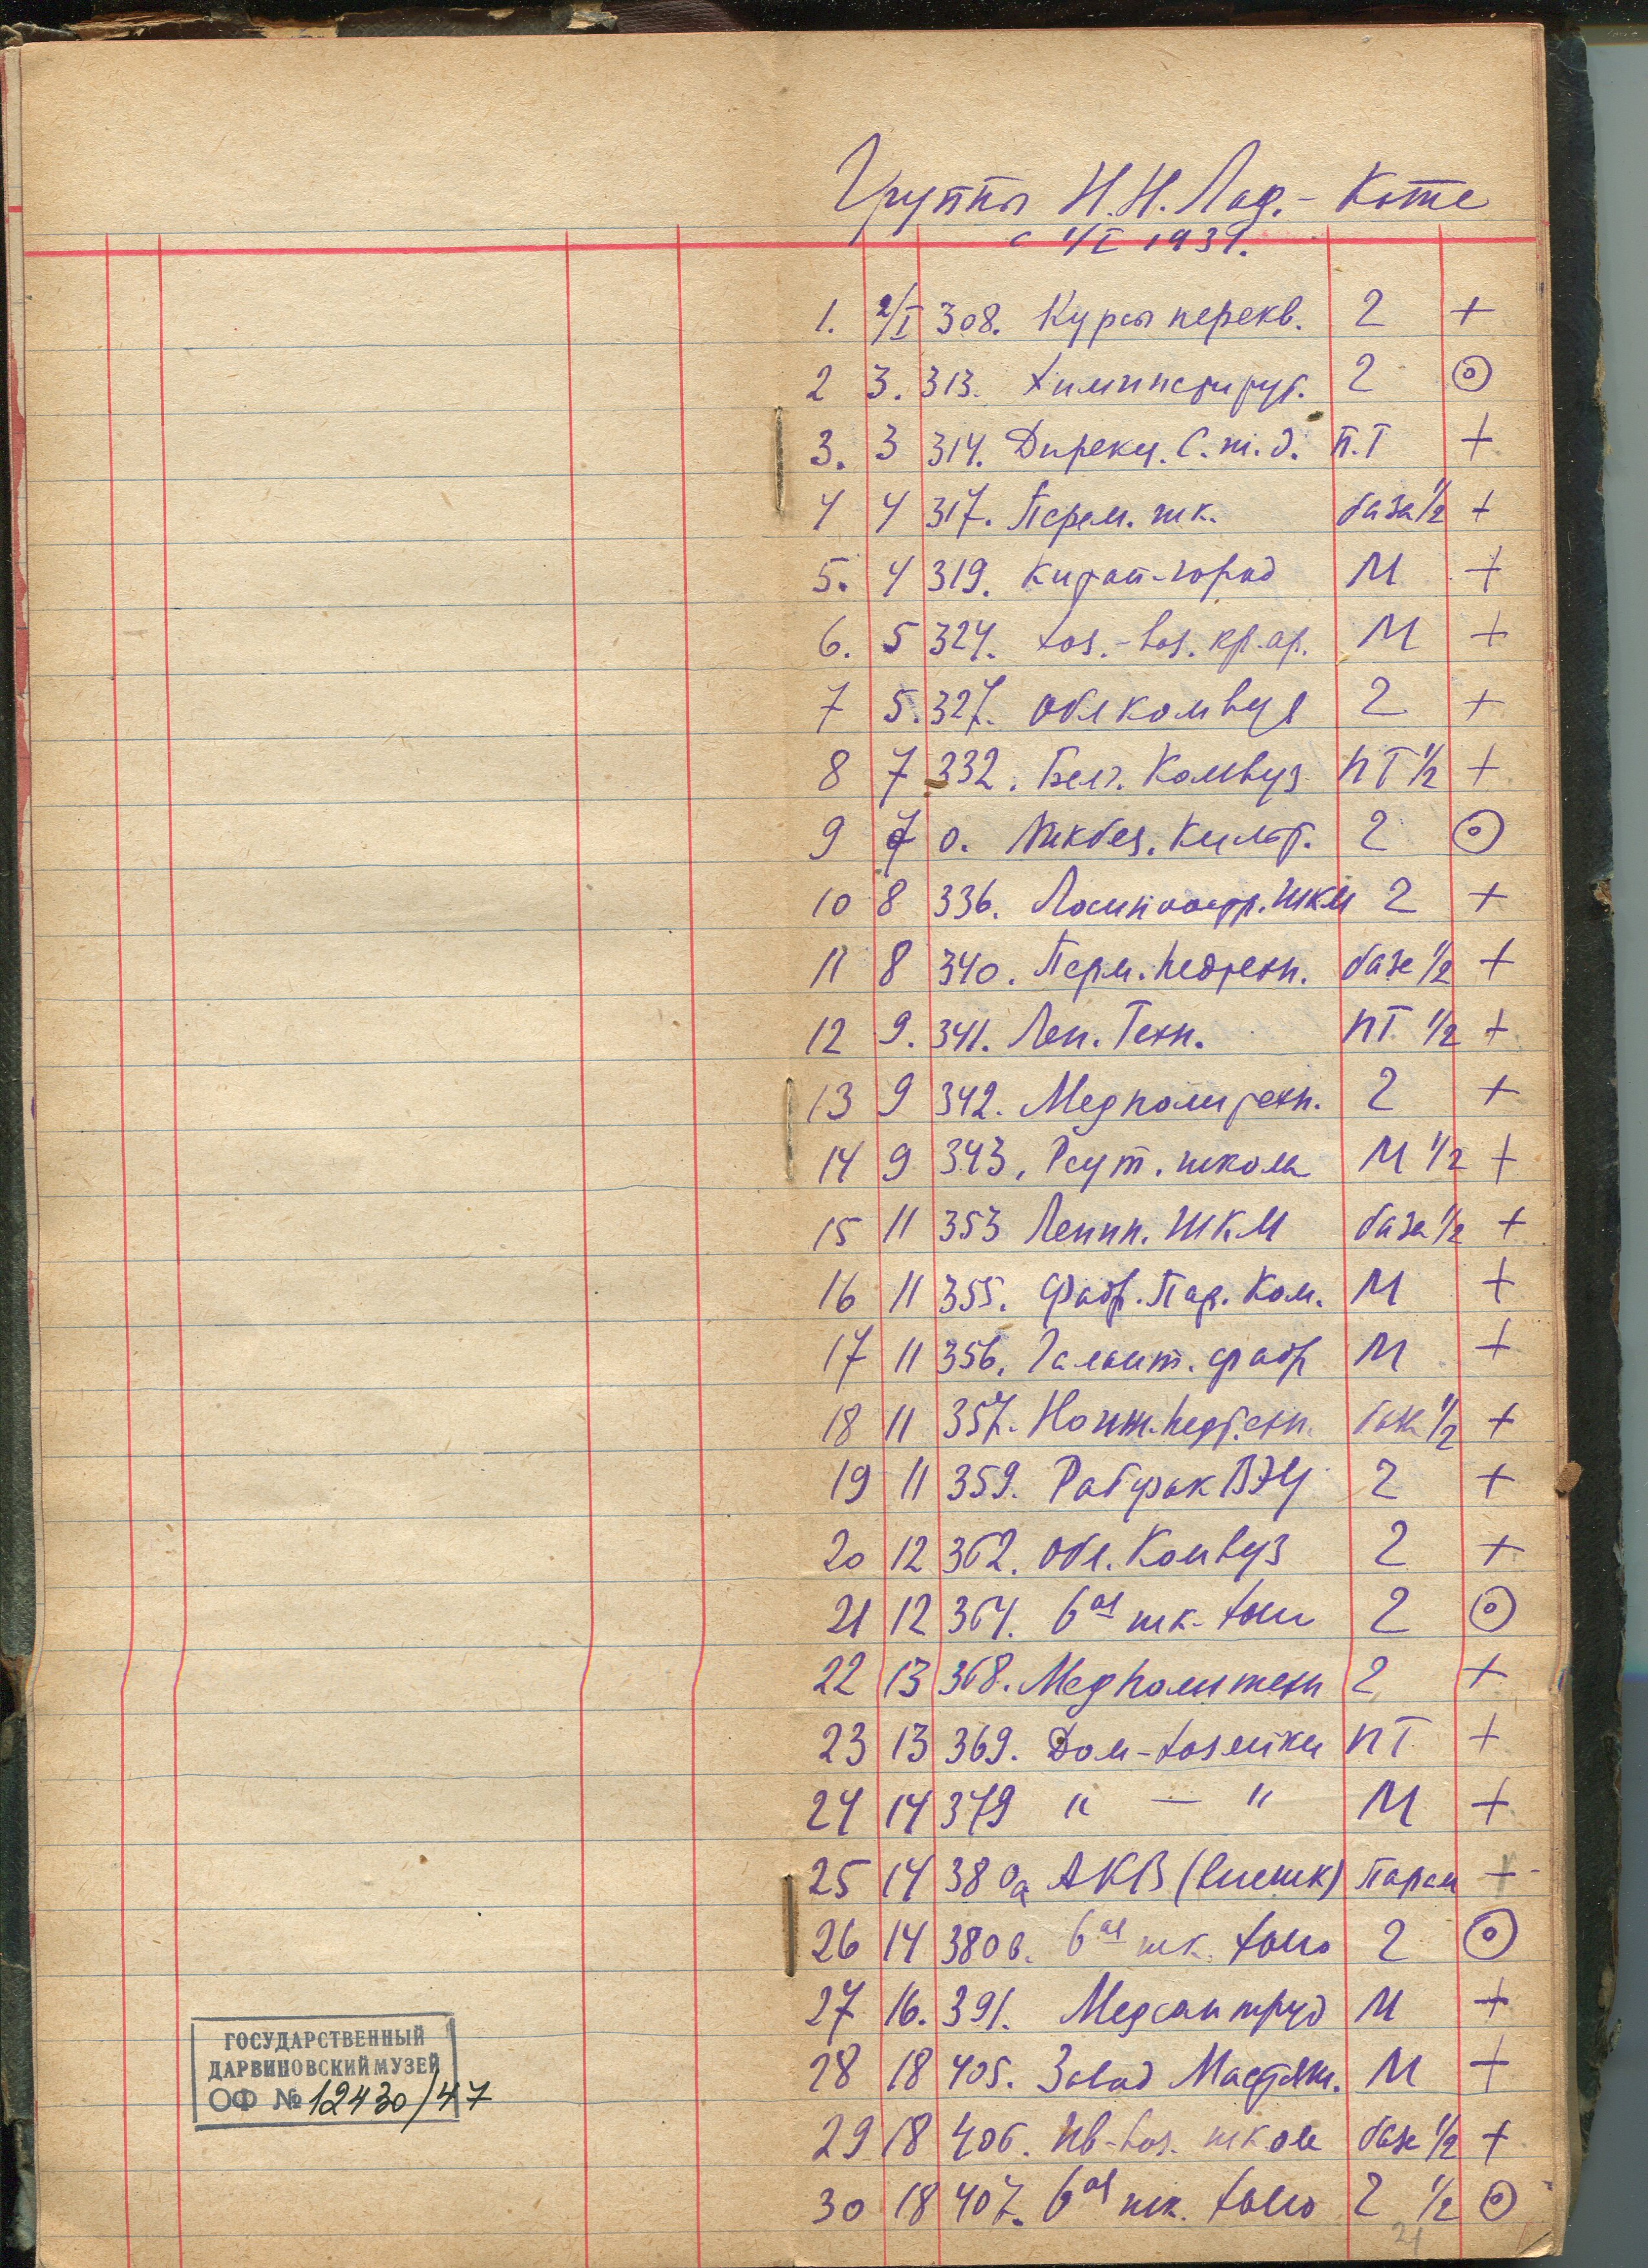 Группы Н.Н. Лад.-Котс
с 1/I 1931.
1. 2/I 308. Курсы перекв. 2 +
2 3. 313. Химинститут. 2 ⊙
3. 3 314. Дирекц. С. т. д. П.Т +
4 4 317. Перем. шк. база 1/2 +
5. 4 319. Китай-город М +
6. 5 324. Хоз.-воз. кр.ар. М +
7 5. 327. Обл комвуз 2 +
8 7 332. Комвуз ПТ 1/2 +
9 7 0. Ликбез. Культ. 2 ⊙
10 8 336. ШКМ 2 +
11 8 340. Перм. педтехн. база 1/2 +
12 9. 341. Лен. Техн. ПТ 1/2 +
13 9 342. Медполитехн. 2 +
14 9 343. Реут. школа М 1/2 +
15 11 353 Ленин. ШКМ база 1/2 +
16 11 355. Фабр. Пар. Ком. М +
17 11 356. Галант. фабр М +
18 11 357. педтехн. база 1/2 +
19 11 359. Рабфак ВЭИ 2 +
20 12 362. Обл. Комвуз 2 +
21 12 364. 6ая шк. 2 ⊙
22 13 368. Медполитехн 2 +
23 13 369. Дом-хозяйки ПТ +
24 14 379 " — " М +
25 14 380а АКВ ( +
26 14 380в. 6ая шк. 2 ⊙
27 16. 391. Медсантруд М +
28 18 405. Завод Мастяж. М +
29 18 406. школа база 1/2 +
30 18 407. 6ая шк. 2 1/2 ⊙
21
ГОСУДАРСТВЕННЫЙ
ДАРВИНОВСКИЙ МУЗЕЙ
ОФ № 12430/47